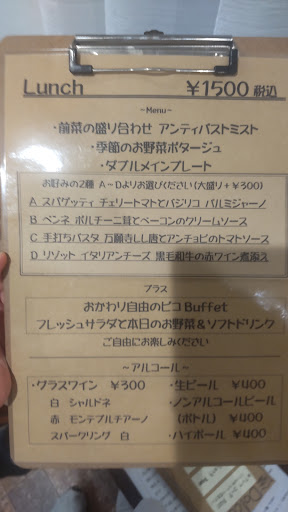 Lunch ¥1500 税込
~Menu~
・前菜の盛り合わせ アンティパストミスト
・季節のお野菜ポタージュ
・ダブルメインプレート
お好みの2種 A~Dよりお選びください(大盛り+¥300)
A スパゲッティ チェリートマトとバジリコ パルミジャーノ
B ペンネ ポルチーニ茸とベーコンのクリームソース
C 手打ちパスタ 万願寺しし唐とアンチョビのトマトソース
D リゾット イタリアンチーズ 黒毛和牛の赤ワイン煮添え
プラス
おかわり自由のピコBuffet
フレッシュサラダと本日のお野菜&ソフトドリンク
ご自由にお楽しみください
~アルコール~
・グラスワイン ¥300 ・生ビール ¥400
白 シャルドネ ・ノンアルコールビール
赤 モンテプルチアーノ (ボトル) ¥400
スパークリング 白 ・ハイボール ¥400